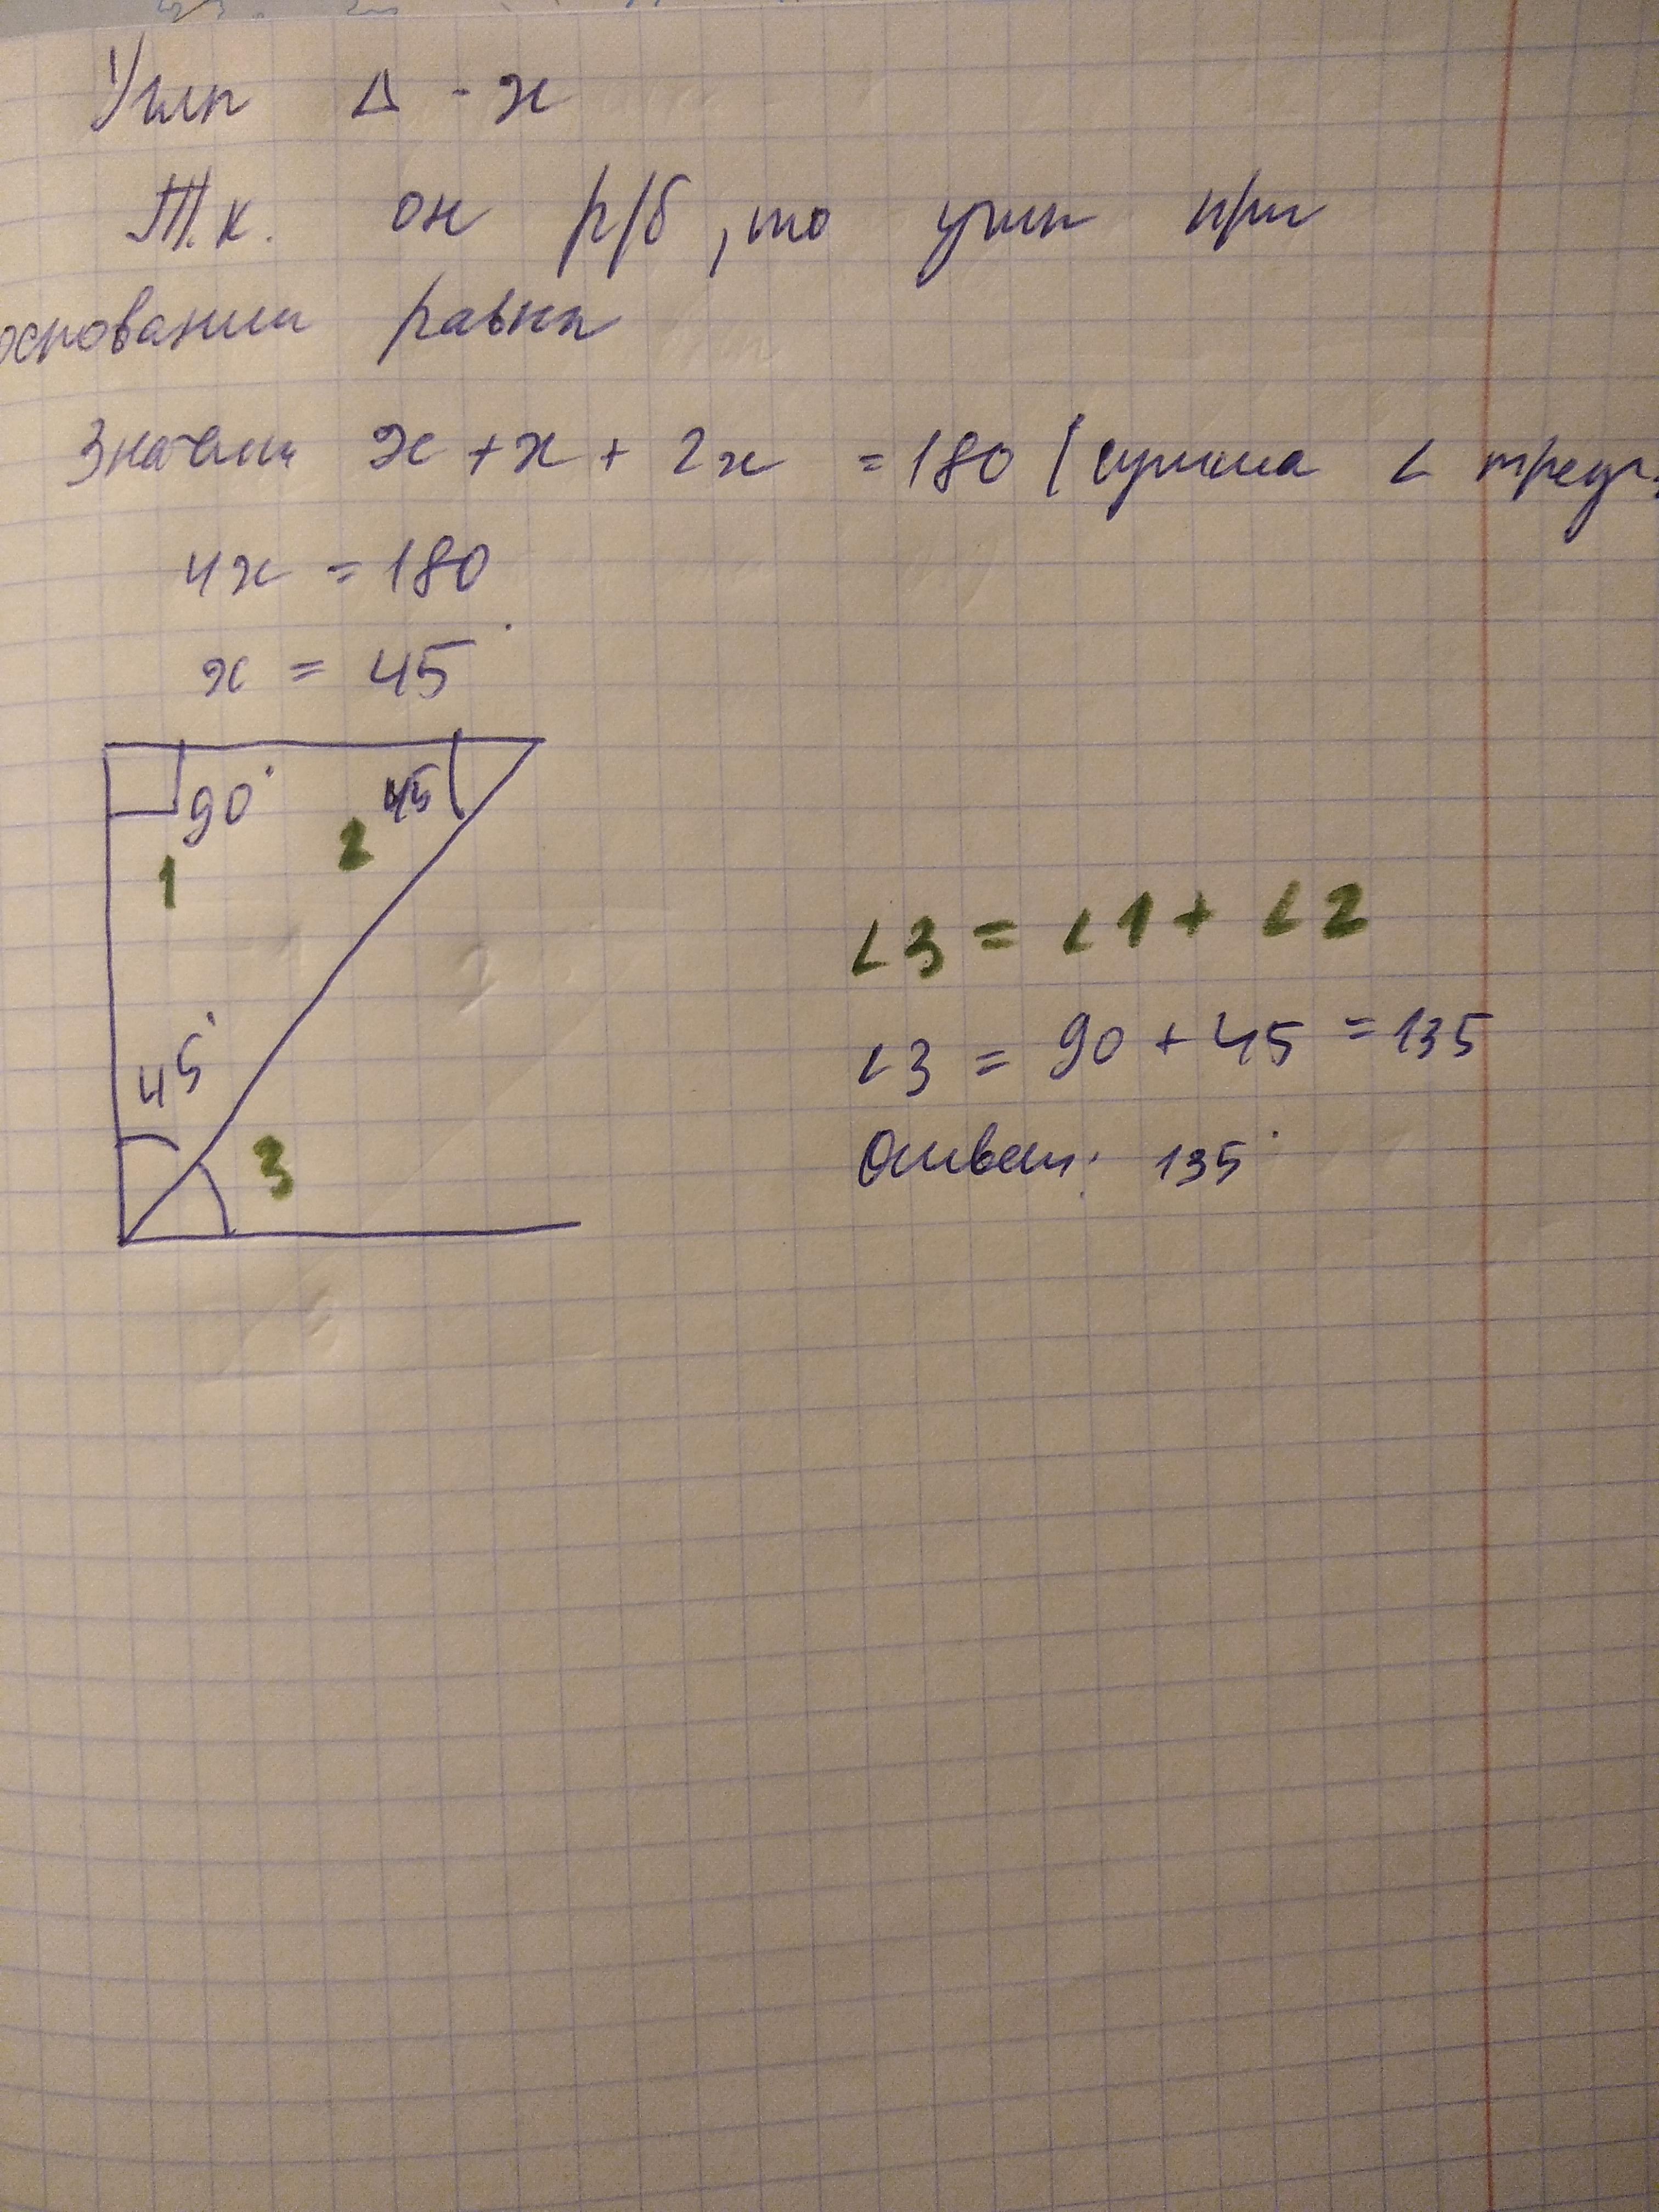 Углы Δ - х
Т.к. он р/б, то углы при
основании равны
Значит х + х + 2х = 180 (сумма ∠ треуг.
4х = 180
х = 45°
90° 45
1 2
45°
3
∠3 = ∠1 + ∠2
∠3 = 90 + 45 = 135
Ответ: 135°